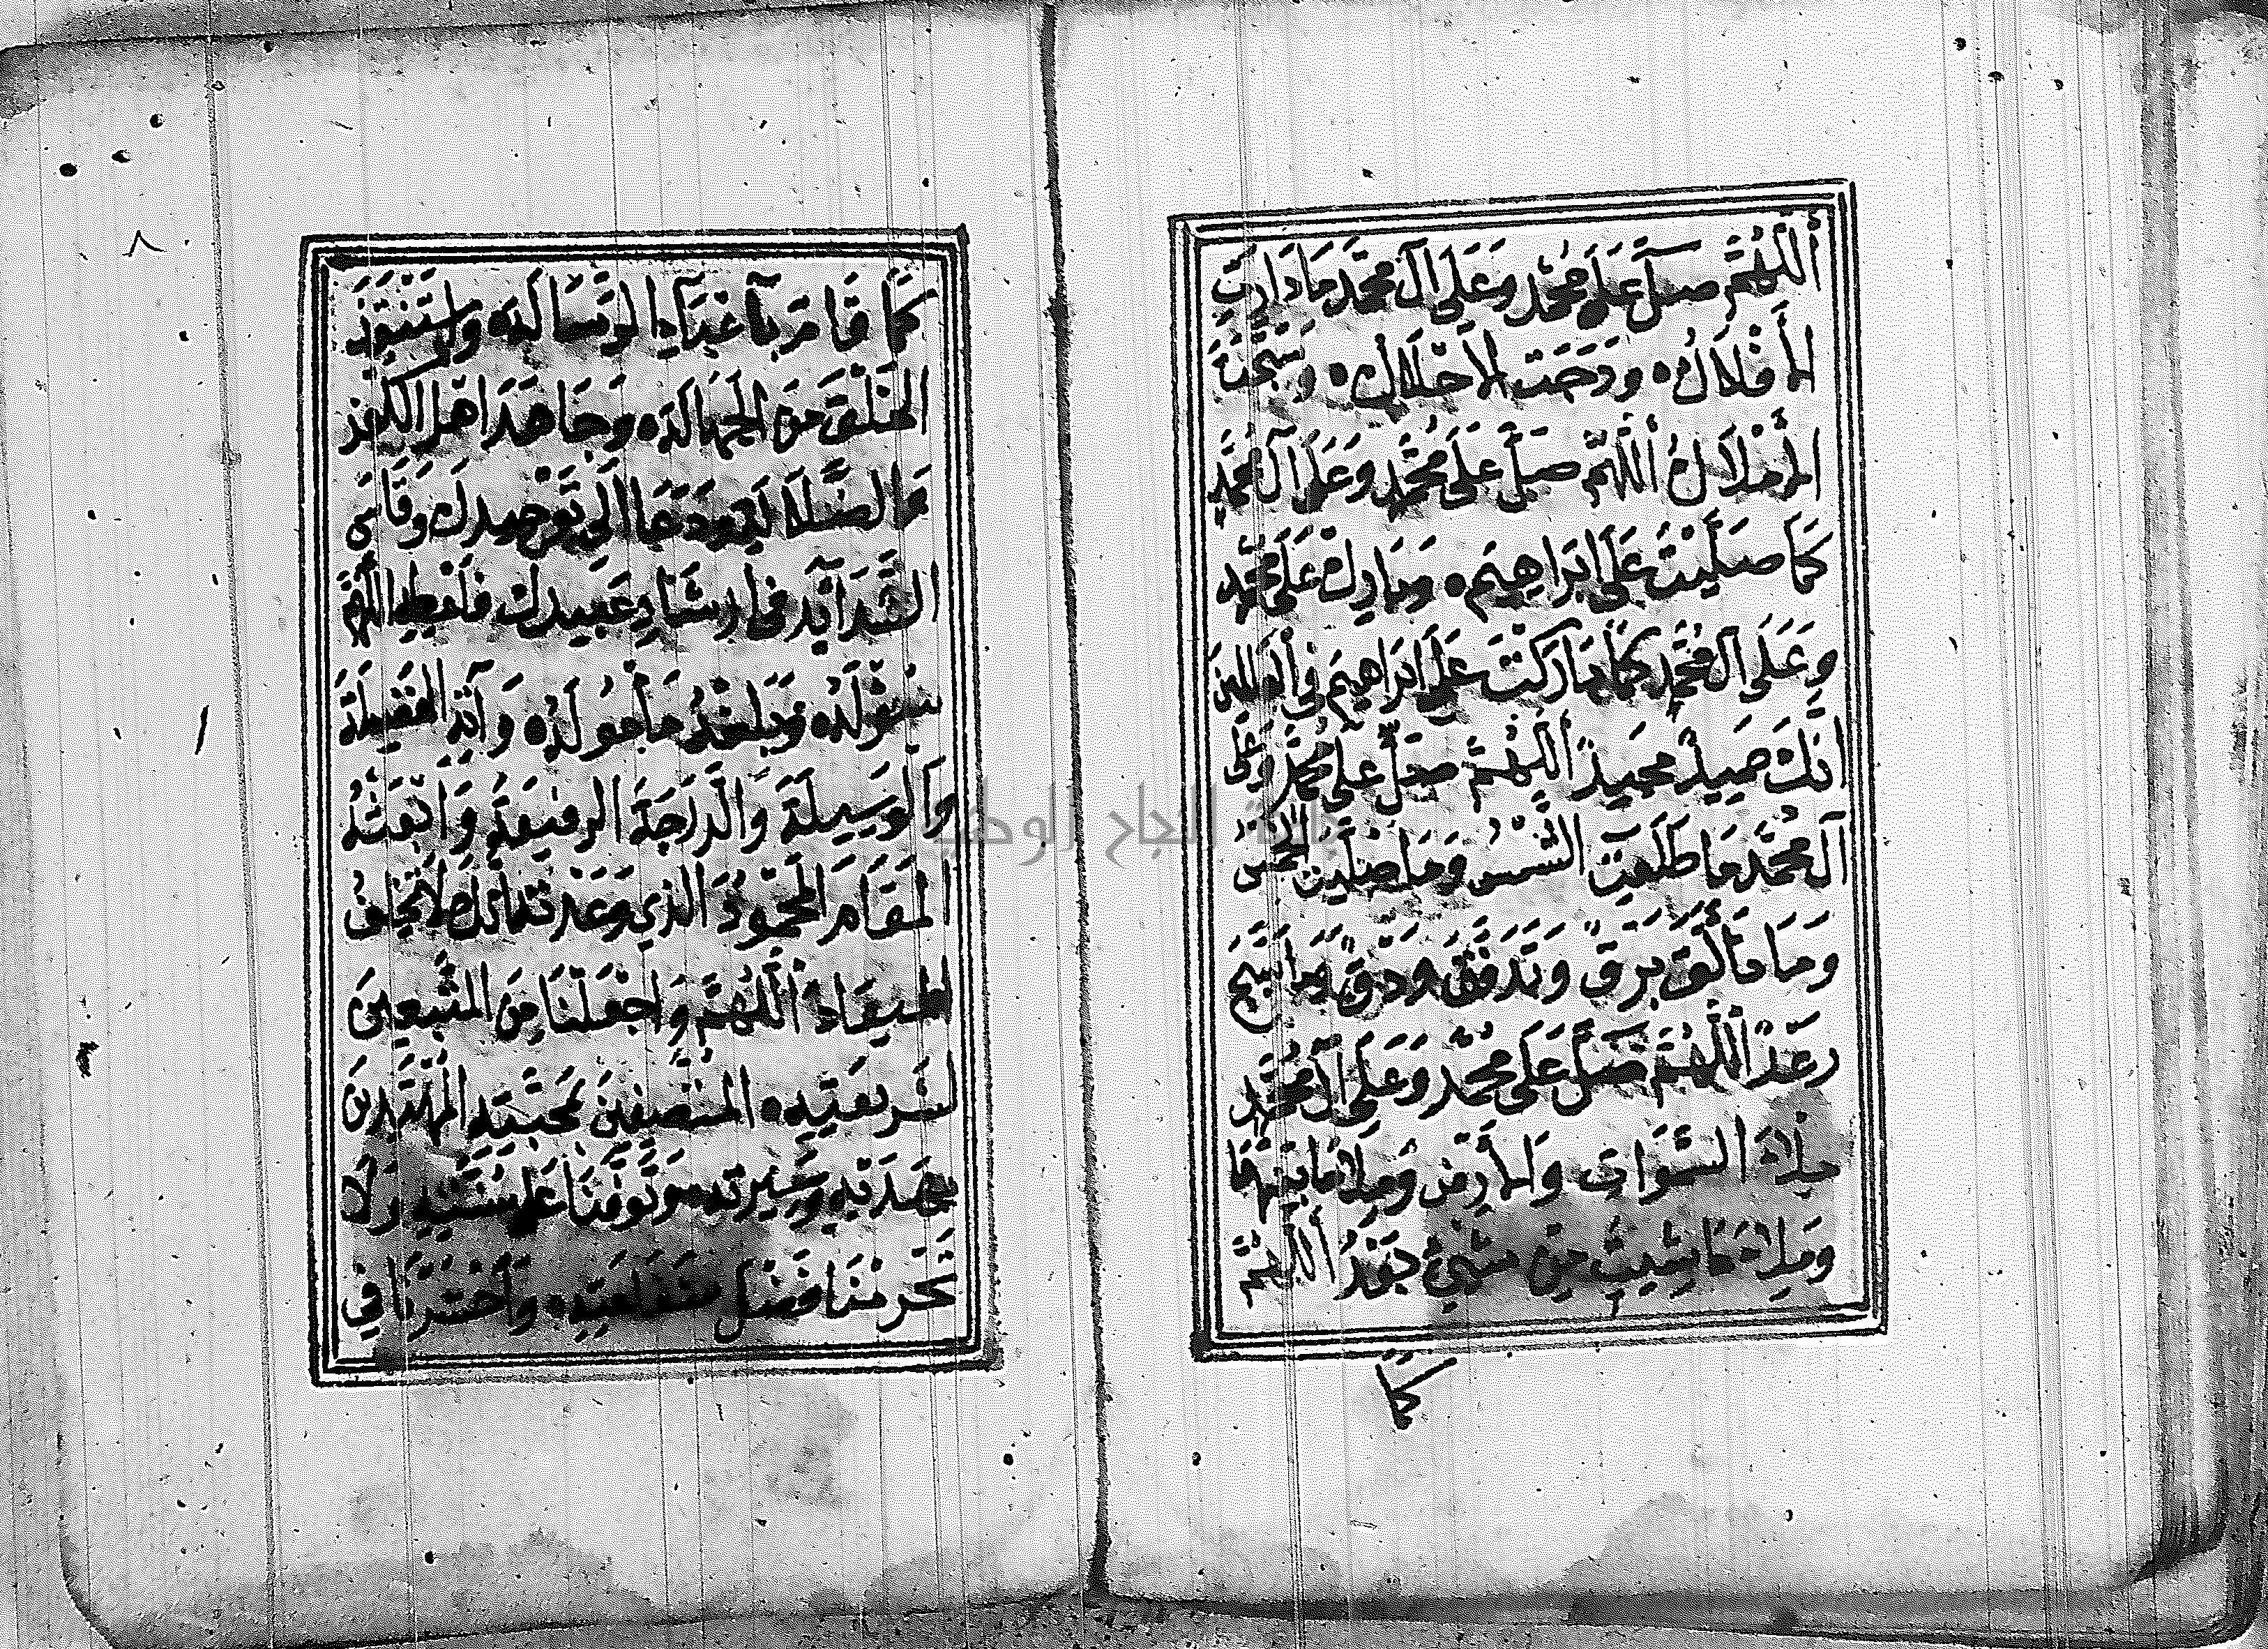 أللهم صل على محمد وعلى آل محمد ما دارت
الأفلاك ودجت الأحلاك وسبحت
الأملاك أللهم صل على محمد وعلى آل محمد
كما صليت على ابراهيم وبارك على محمد
وعلى آل محمد كما باركت على ابراهيم في العالمين
انك حميد مجيد أللهم صل على محمد وعلى
آل محمد ما طلعت الشمس وما صليت الخمس
وما تألق برق وتدفق ودق وما سبح
رعد أللهم صل على محمد وعلى آل محمد
ملاء السموات والأرض وملأ ما بينهما
وملاء ما شيت من شيئ بعد أللهم
كما
كما قام بأعباء الرسالة واستنقذ
الخلق من الجهالة وجاهد اهل الكفر
والضلالة ودعا الى توحيدك وقاسى
الشدآئد في ارشاد عبيدك فاعطه اللهم
سؤله وبلغه مأموله وآته الفضيلة
والوسيلة والدرجة الرفيعة وابعثه
المقام المحمود الذي وعدته انك لا تخلف
الميعاد أللهم واجعلنا من المتبعين
لشريعته المتصفين بمحبته المهتدين
بهديه وسيرته وتوفنا على سنته ولا
تحرمنا فضل شفاعته واحشرنا في
٨
جامعة النجاح الوطنية